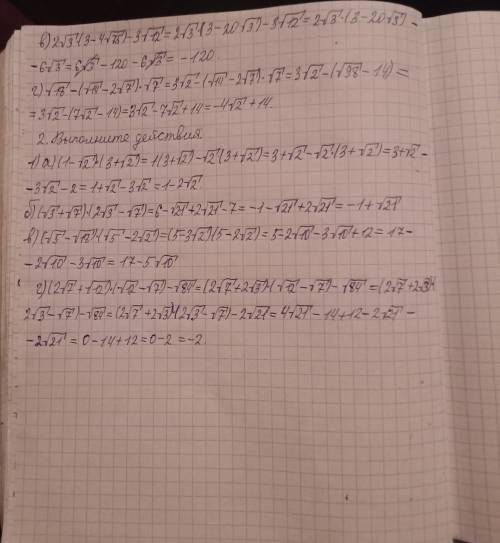 в) 2√3·(3-4√75)-3√12=2√3·(3-20√3)-3√12=2√3·(3-20√3)-
-6√3=6√3-120-6√3=-120
г) √18-(√14-2√7)·√7=3√2-(√14-2√7)·√7=3√2-(√98-14)=
=3√2-(7√2-14)=3√2-7√2+14=-4√2+14.
2. Выполните действия
1) а) (1-√2)·(3+√2)=1(3+√2)-√2·(3+√2)=3+√2-√2·(3+√2)=3+√2-
-3√2-2=1+√2-3√2=1-2√2
б) (√3+√7)·(2√3-√7)=6-√21+2√21-7=-1-√21+2√21=-1+√21
в) (√5-√18)·(√5-2√2)=(5-3√2)(5-2√2)=5-2√10-3√10+12=17-
-2√10-3√10=17-5√10
г) (2√7+√12)·(√12-√7)-√84=(2√7+2√3)·(√12-√7)-√84=(2√7+2√3)·(
2√3-√7)-√84=(2√7+2√3)·(2√3-√7)-2√21=4√21-14+12-2√21-
-2√21=0-14+12=0-2=-2.